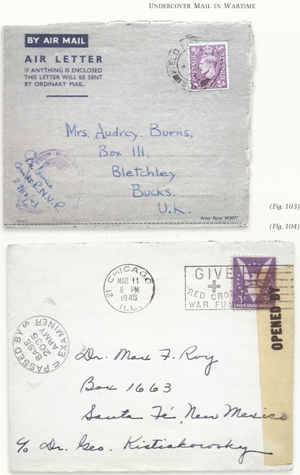 UNDERCOVER MAIL IN WARTIME
BY AIR MAIL
AIR LETTER
IF ANYTHING IS ENCLOSED
THIS LETTER WILL BE SENT
BY ORDINARY MAIL.
FIELD
Mrs. Audrey Burns,
Box 111,
Bletchley
Bucks.
U.K.
R.N.V.R
(Fig. 103)
(Fig. 104)
CHICAGO
MAR 11
8 PM
1945
ILL.
GIVE
RED CROSS
WAR FUND
3
OPENED BY
PASSED BY
BASE
ARMY
EXAMINER
Dr. Max F. Roy
Box 1663
Santa Fé, New Mexico
c/o Dr. Geo. Kistiakowsky